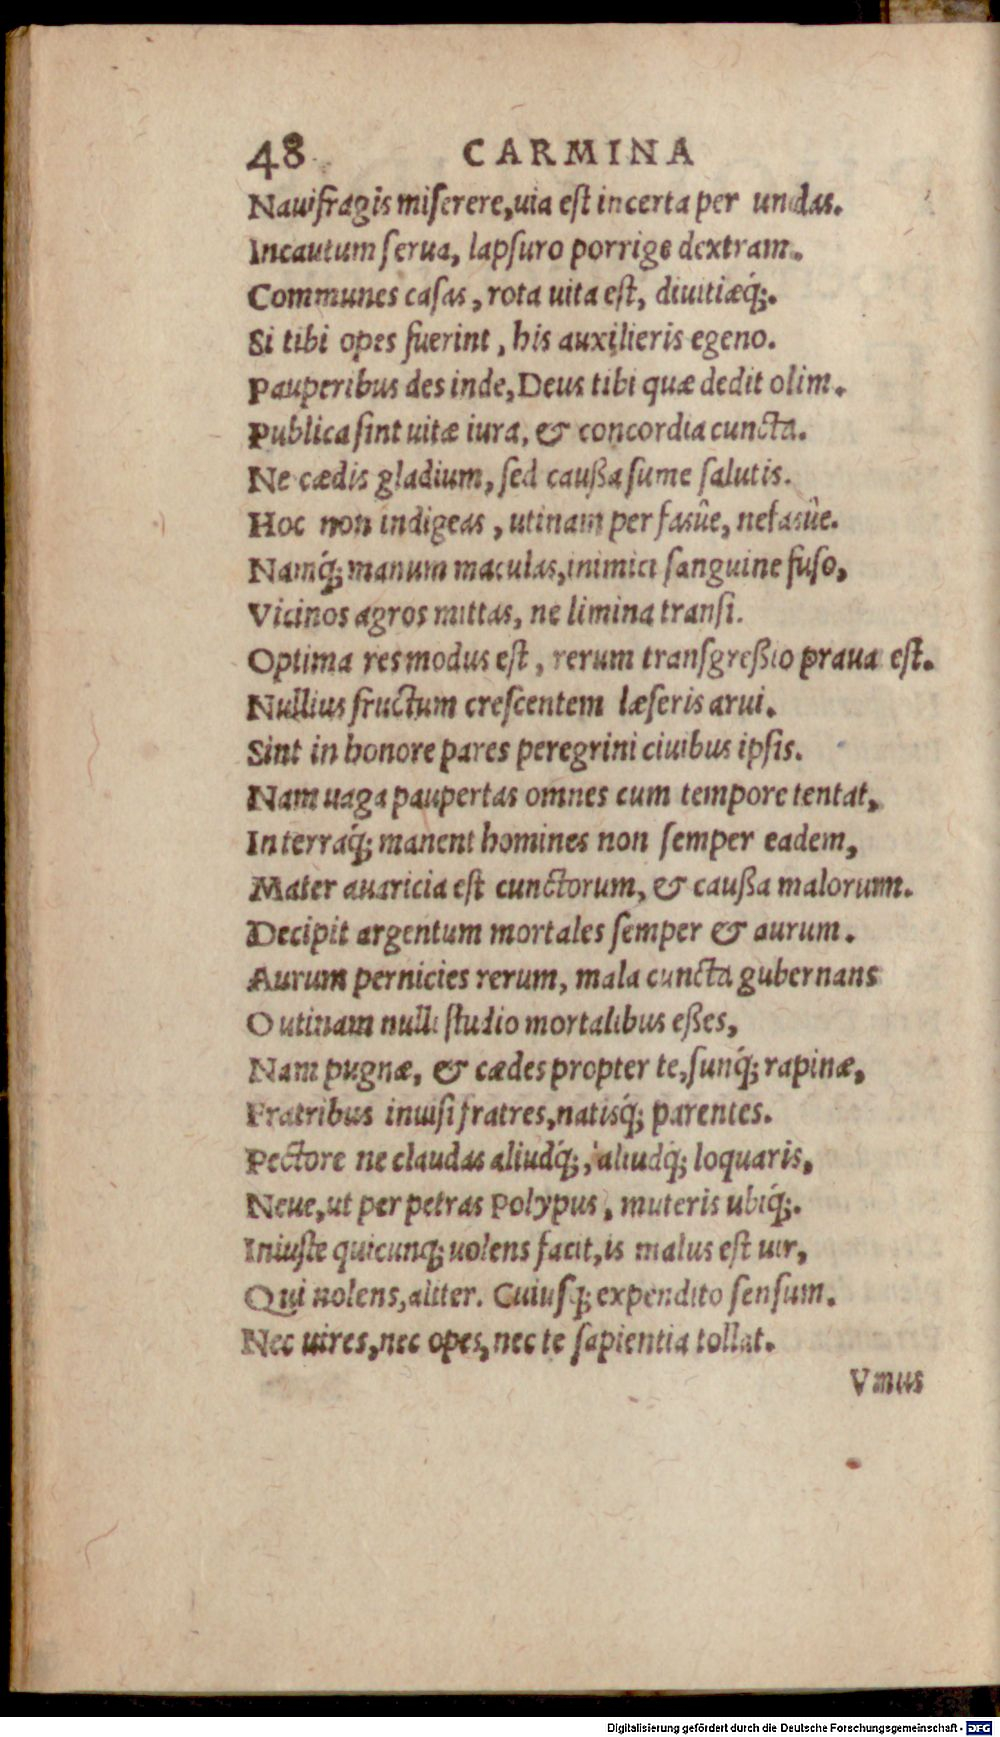 48 CARMINA
Naufragis miserere, uia est incerta per undas.
Incautum serua, lapsuro porrige dextram.
Communes casas, rota uita est, diuitiæq́;.
Si tibi opes fuerint, his auxilieris egeno.
Pauperibus des inde, Deus tibi quæ dedit olim.
Publica sint uitæ iura, & concordia cuncta.
Ne cædis gladium, sed caußa sume salutis.
Hoc non indigeas, utinam per fasûe, nefasûe.
Namq́; manum maculas, inimici sanguine fuso,
Vicinos agros mittas, ne limina transi.
Optima res modus est, rerum transgreßio praua est.
Nullius fructum crescentem læseris arui.
Sint in honore pares peregrini ciuibus ipsis.
Nam uaga paupertas omnes cum tempore tentat,
In terraq́; manent homines non semper eadem,
Mater auaricia est cunctorum, & caußa malorum.
Decipit argentum mortales semper & aurum.
Aurum pernicies rerum, mala cuncta gubernans
O utinam nulli studio mortalibus eßes,
Nam pugnæ, & cædes propter te, sunq́; rapinæ,
Fratribus inuisi fratres, natisq́; parentes.
Pectore ne claudas aliudq́;, aliudq́; loquaris,
Neue, ut per petras Polypus, muteris ubiq́;.
Iniuste quicunq; uolens facit, is malus est uir,
Qui nolens, aliter. Cuiusq; expendito sensum.
Nec uires, nec opes, nec te sapientia tollat.
Vnus
Digitalisierung gefördert durch die Deutsche Forschungsgemeinschaft - DFG